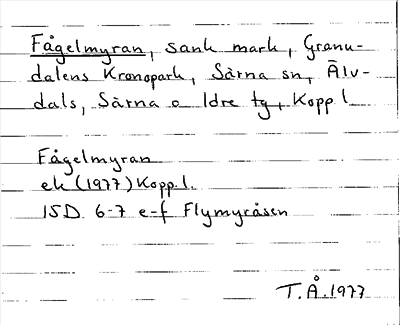 Fågelmyran, sank mark, Granu-
dalens Kronopark, Särna sn, Älv-
dals, Särna o Idre tg, Kopp l.
Fågelmyran
ek (1977) Kopp. l.
15D 6-7 e-f Flymyråsen
T.Å. 1977